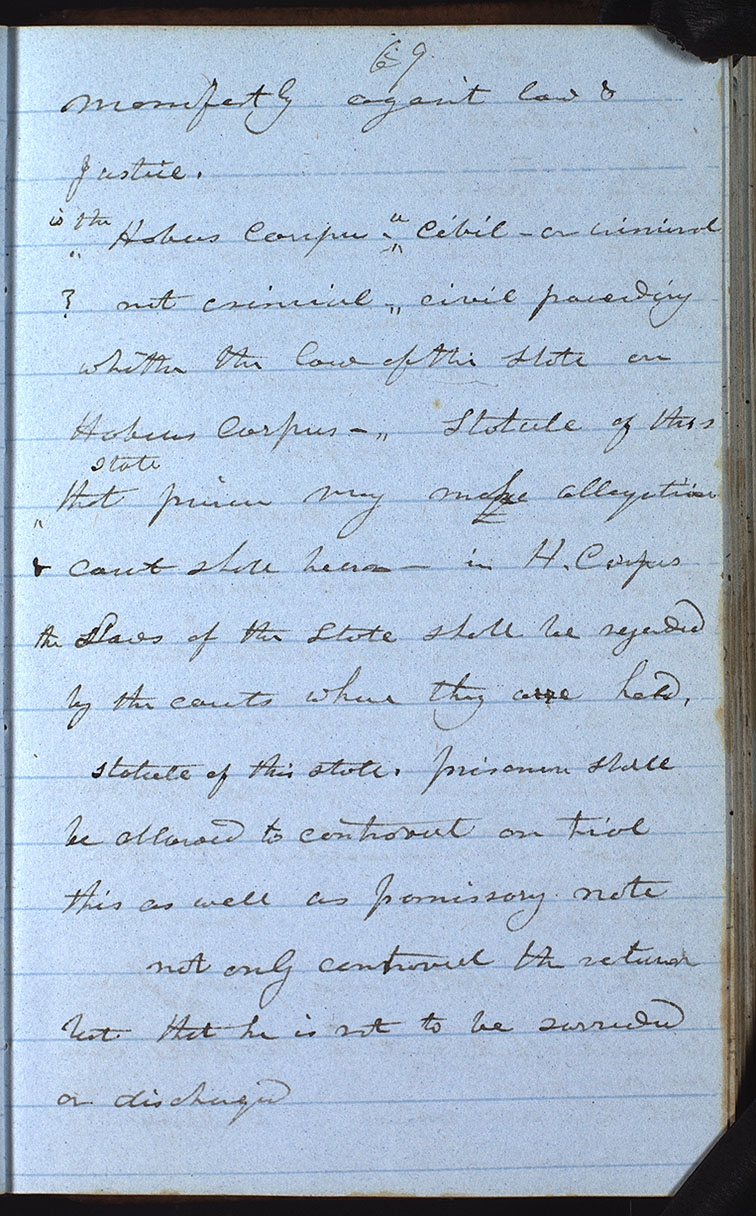 69
manifestly against law &
Justice.
is the Habeus Corpus a Civil - or criminal
? not criminial „ civil proceeding
whether the law of this state on
Habeus Corpus - „ Statute of this
state
„ that prisoner may make allegation
& court shall hear - in H. Corpus
the Laws of the State shall be regarded
by the courts where they are held,
statute of this state. prisoner shall
be allowed to controvert on trial
this as well as promissory note
not only controvert the return
but that he is not to be surrended
or discharged